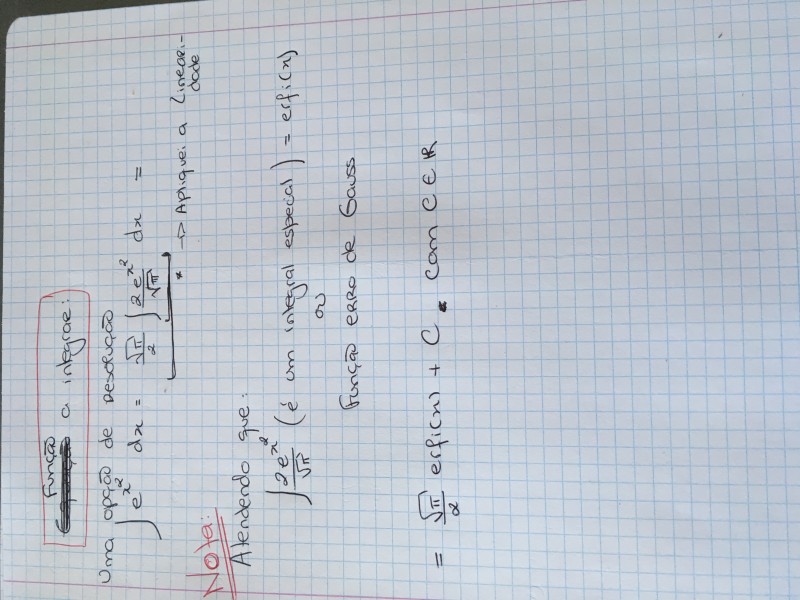 Função
a integrar:
Uma opção de resolução
∫ e^{x^2} dx = √π/2 ∫ 2e^{x^2}/√π dx =
* → Apliquei a Lineari-
dade
Nota:
Atendendo que:
∫ 2e^{x^2}/√π (é um integral especial) = erfi(x)
ou
função erro de Gauss
= √π/2 erfi(x) + C. com C ∈ ℝ